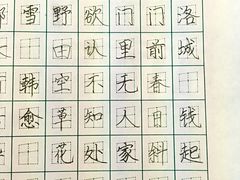 洛城 钱起
门前春日斜
门里无人家
欲认不知处
野田空草花
雪 韩愈